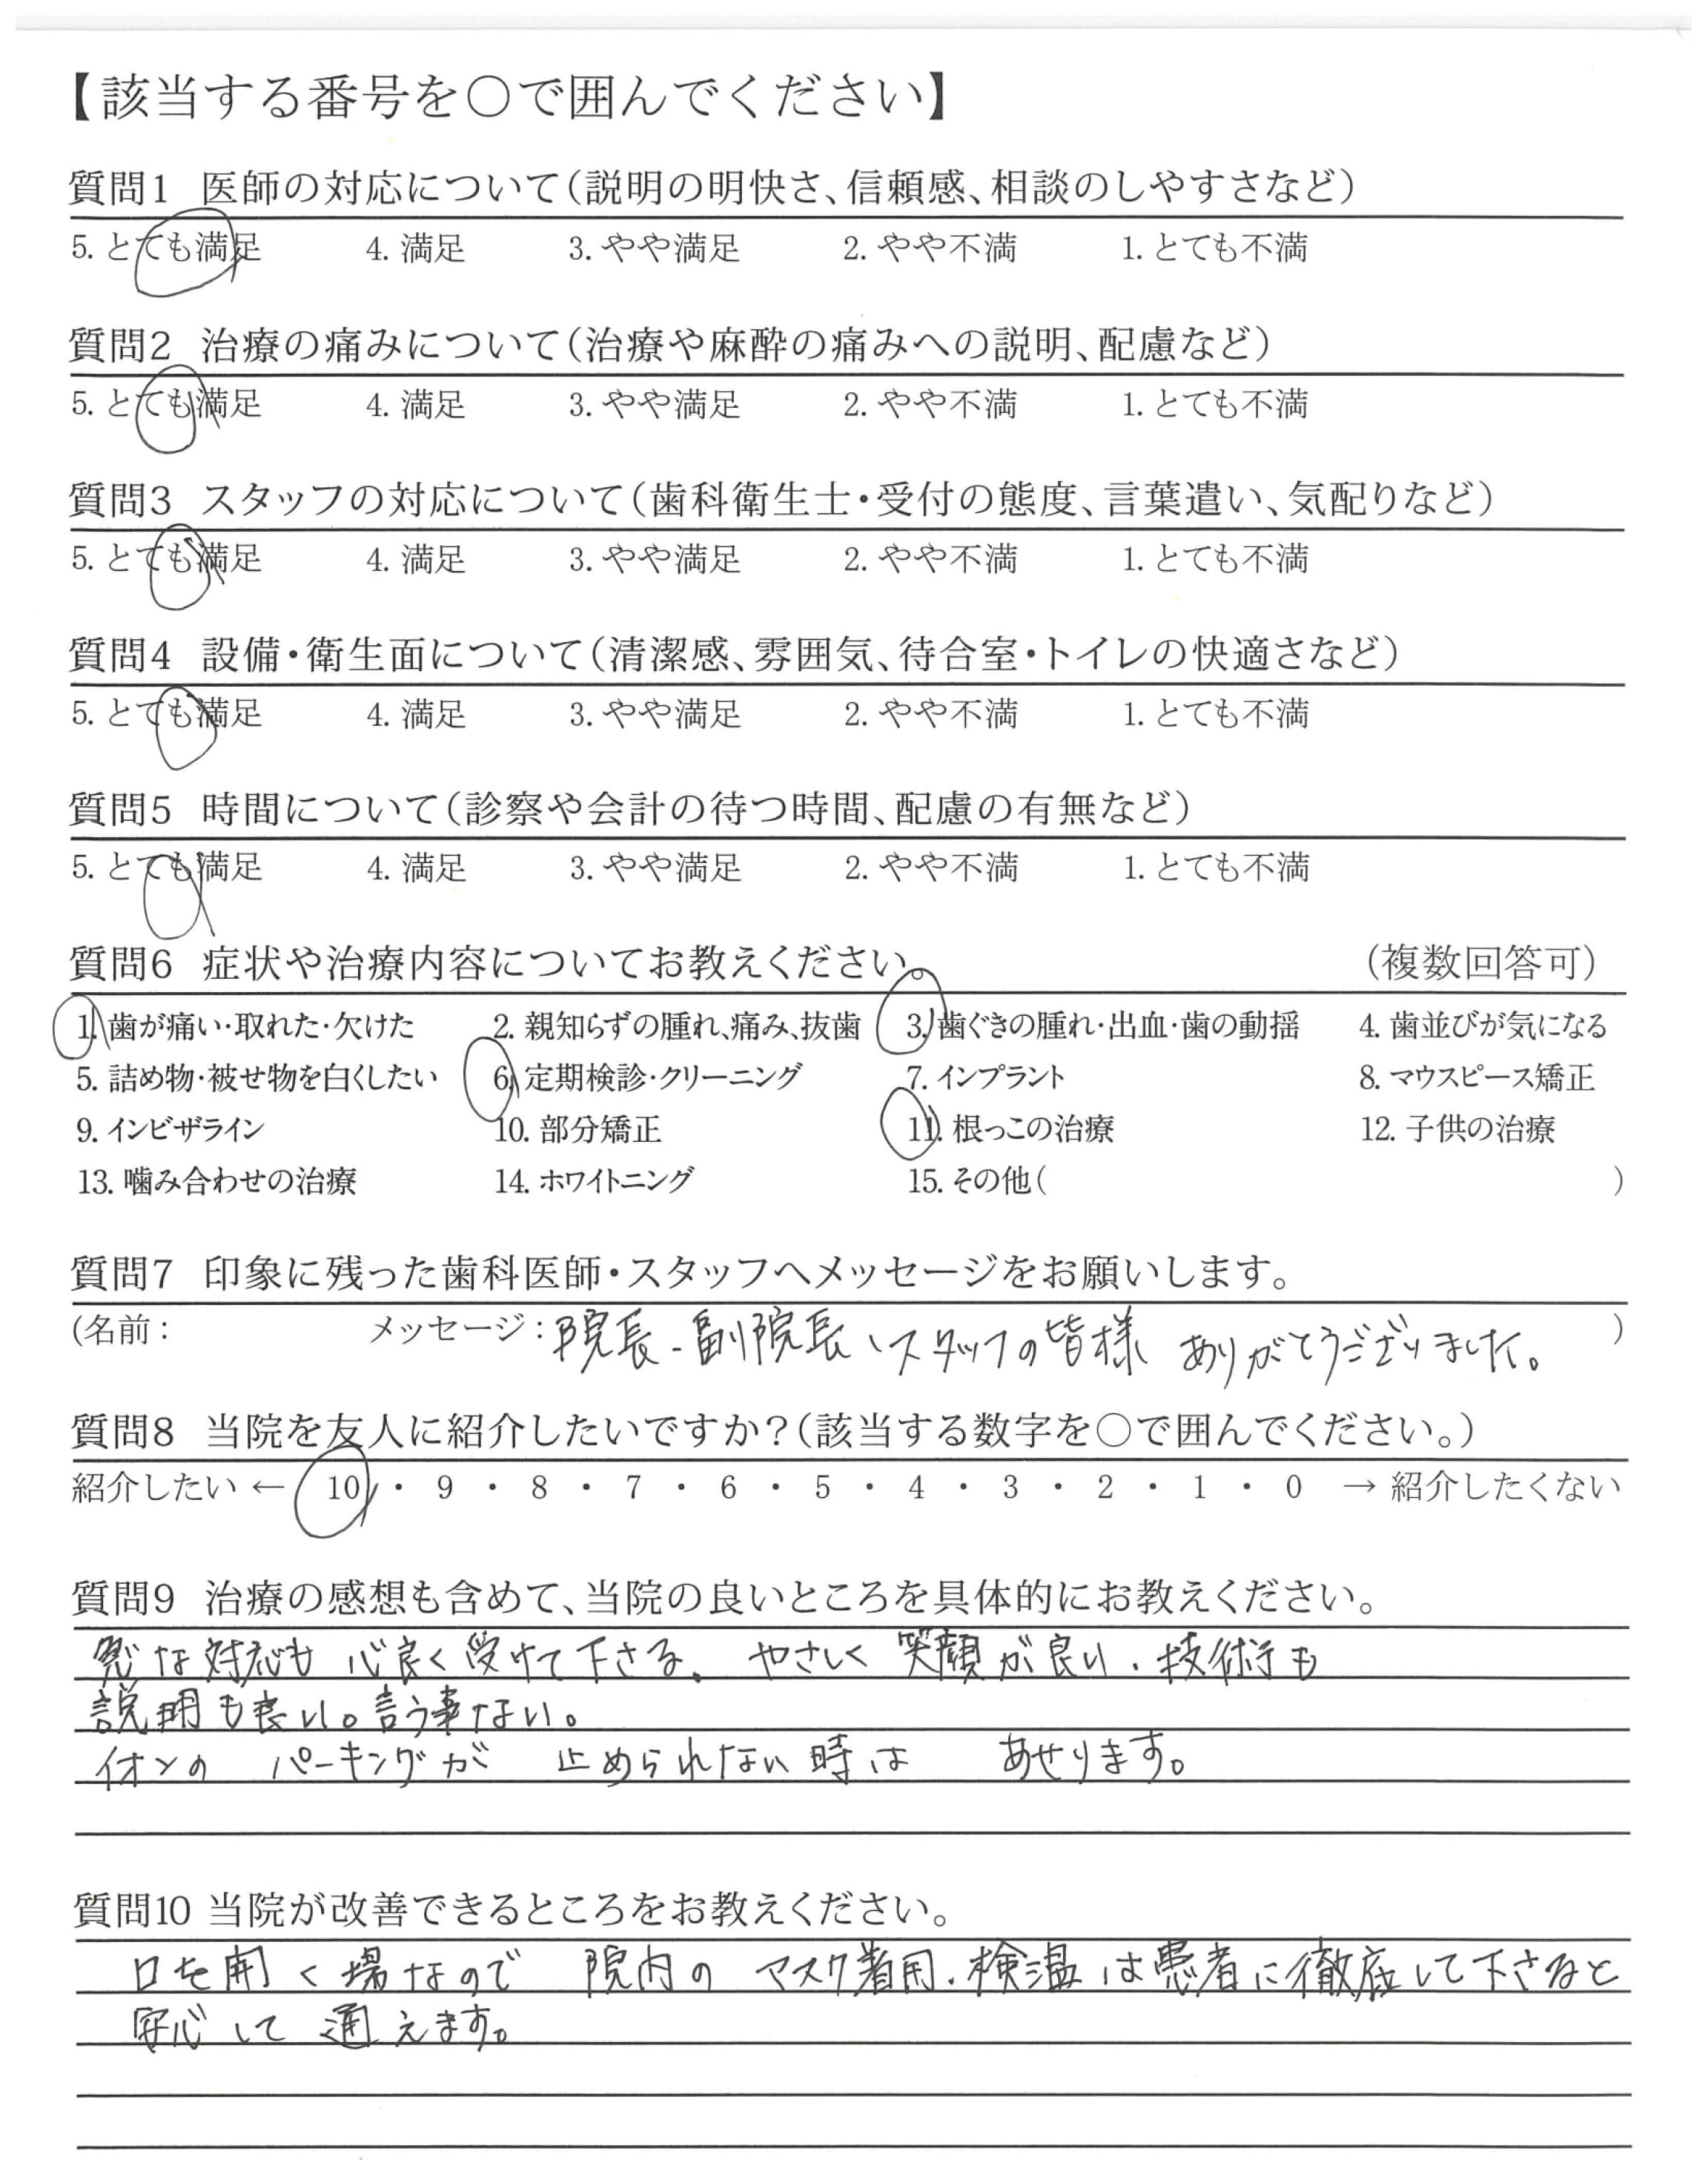 【該当する番号を○で囲んでください】
質問1 医師の対応について(説明の明快さ、信頼感、相談のしやすさなど)
5. とても満足 4. 満足 3. やや満足 2. やや不満 1. とても不満
質問2 治療の痛みについて(治療や麻酔の痛みへの説明、配慮など)
5. とても満足 4. 満足 3. やや満足 2. やや不満 1. とても不満
質問3 スタッフの対応について(歯科衛生士・受付の態度、言葉遣い、気配りなど)
5. とても満足 4. 満足 3. やや満足 2. やや不満 1. とても不満
質問4 設備・衛生面について(清潔感、雰囲気、待合室・トイレの快適さなど)
5. とても満足 4. 満足 3. やや満足 2. やや不満 1. とても不満
質問5 時間について(診察や会計の待つ時間、配慮の有無など)
5. とても満足 4. 満足 3. やや満足 2. やや不満 1. とても不満
質問6 症状や治療内容についてお教えください。 (複数回答可)
1. 歯が痛い・取れた・欠けた 2. 親知らずの腫れ、痛み、抜歯 3. 歯ぐきの腫れ・出血・歯の動揺 4. 歯並びが気になる
5. 詰め物・被せ物を白くしたい 6. 定期検診・クリーニング 7. インプラント 8. マウスピース矯正
9. インビザライン 10. 部分矯正 11. 根っこの治療 12. 子供の治療
13. 噛み合わせの治療 14. ホワイトニング 15. その他( )
質問7 印象に残った歯科医師・スタッフへメッセージをお願いします。
(名前: メッセージ:院長-副院長、スタッフの皆様 ありがとうございました。 )
質問8 当院を友人に紹介したいですか?(該当する数字を○で囲んでください。)
紹介したい ← 10 ・ 9 ・ 8 ・ 7 ・ 6 ・ 5 ・ 4 ・ 3 ・ 2 ・ 1 ・ 0 → 紹介したくない
質問9 治療の感想も含めて、当院の良いところを具体的にお教えください。
急な対応も 心良く受けて下さる。やさしく 笑顔が良い.技術も
説明も良い。言う事ない。
イオンの パーキングが 止められない時は あせります。
質問10 当院が改善できるところをお教えください。
口を開く場なので 院内の マスク着用.検温は患者に徹底して下さると
安心して 通えます。